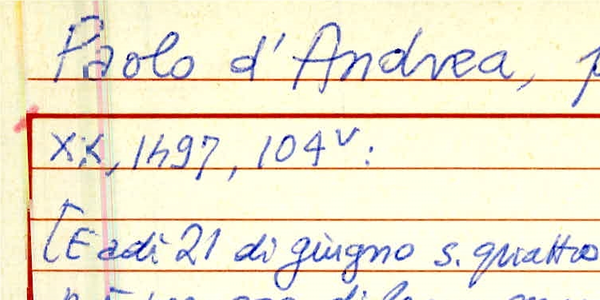 Paolo d'Andrea,
XX, 1497, 104v:
[E adi 21 di giugno s. quattro